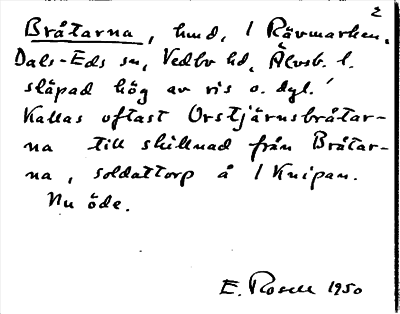 2
Bråtarna, hmd, 1 Rävmarken,
Dals-Eds sn, Vedbo hd, Älvsb. l.
släpad hög av ris o. dyl.
Kallas oftast Orstjärnsbråtar-
na till skillnad från Bråtar-
na, soldattorp å 1 Knipan.
Nu öde.
E. Rosell 1950